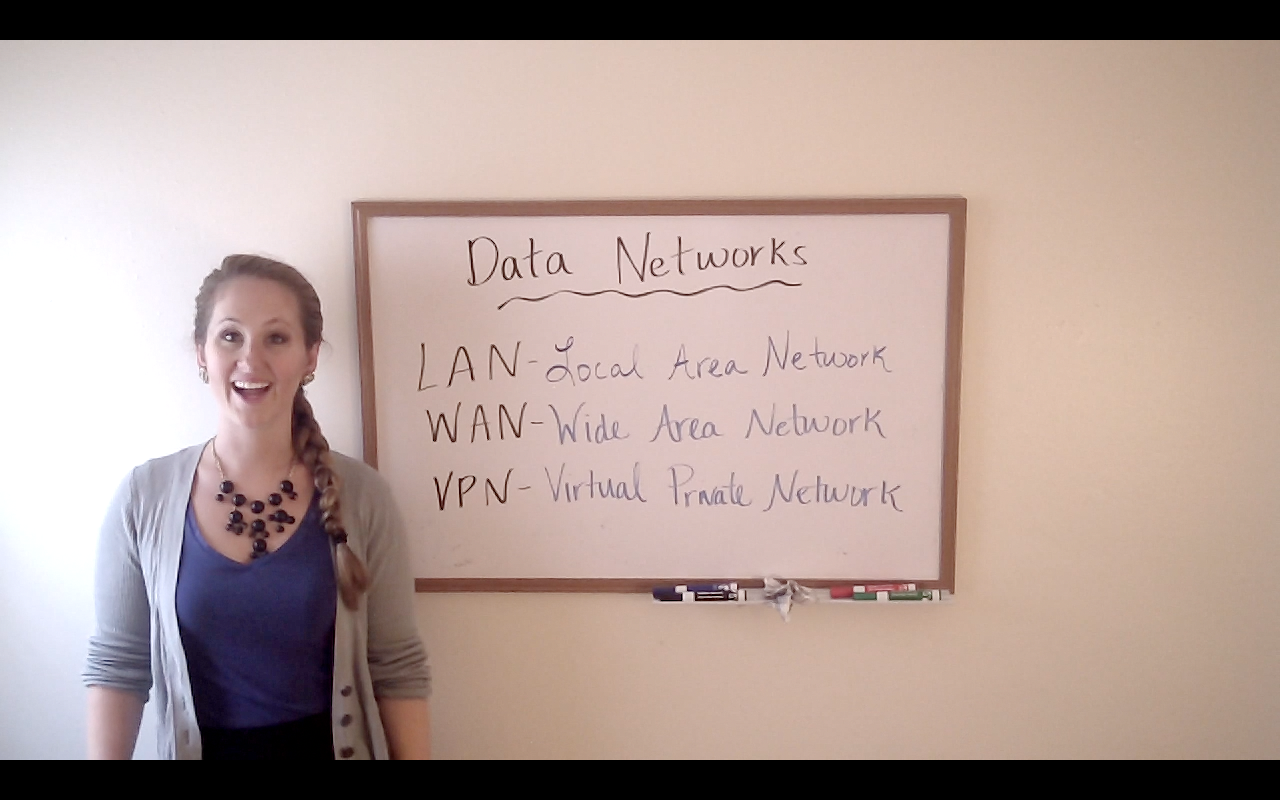 Data Networks
LAN - Local Area Network
WAN - Wide Area Network
VPN - Virtual Private Network